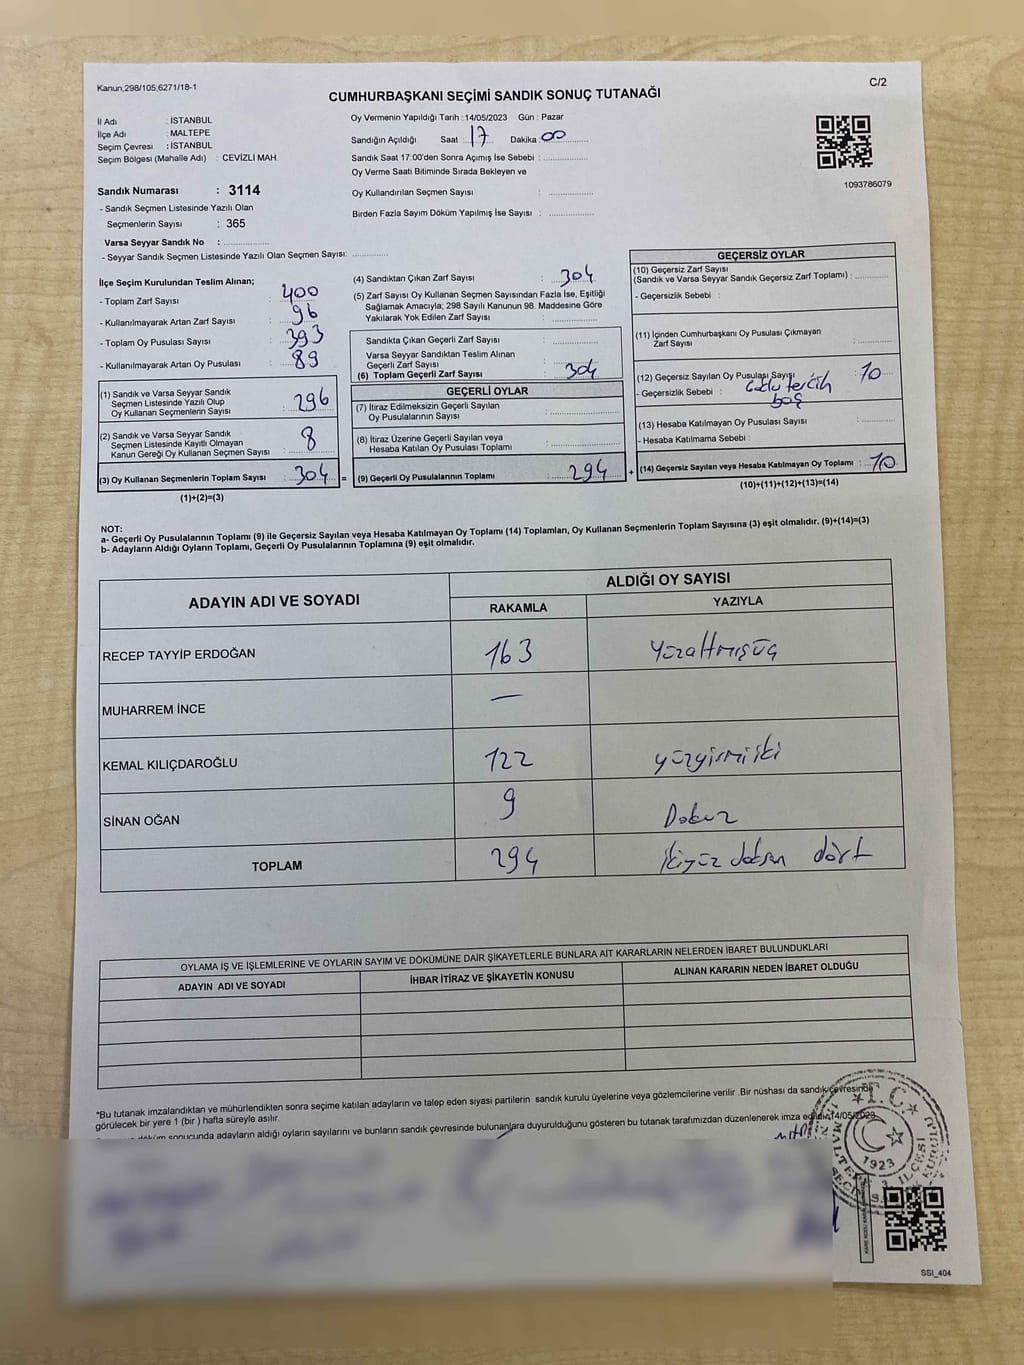 Kanun,298/105,6271/18-1
C/2
CUMHURBAŞKANI SEÇİMİ SANDIK SONUÇ TUTANAĞI
İl Adı : İSTANBUL
İlçe Adı : MALTEPE
Seçim Çevresi : İSTANBUL
Seçim Bölgesi (Mahalle Adı) : CEVİZLİ MAH.
Oy Vermenin Yapıldığı Tarih : 14/05/2023 Gün : Pazar
Sandığın Açıldığı Saat : 17 Dakika : 00
Sandık Saat 17:00'den Sonra Açımış İse Sebebi :
Oy Verme Saati Bitiminde Sırada Bekleyen ve
Oy Kullandırılan Seçmen Sayısı :
Birden Fazla Sayım Döküm Yapılmış İse Sayısı :
1093786079
Sandık Numarası : 3114
- Sandık Seçmen Listesinde Yazılı Olan
Seçmenlerin Sayısı : 365
Varsa Seyyar Sandık No :
- Seyyar Sandık Seçmen Listesinde Yazılı Olan Seçmen Sayısı:
İlçe Seçim Kurulundan Teslim Alınan;
- Toplam Zarf Sayısı : 400
- Kullanılmayarak Artan Zarf Sayısı : 96
- Toplam Oy Pusulası Sayısı : 393
- Kullanılmayarak Artan Oy Pusulası : 89
(1) Sandık ve Varsa Seyyar Sandık
Seçmen Listesinde Yazılı Olup
Oy Kullanan Seçmenlerin Sayısı : 296
(2) Sandık ve Varsa Seyyar Sandık
Seçmen Listesinde Kayıtlı Olmayan
Kanun Gereği Oy Kullanan Seçmen Sayısı : 8
(3) Oy Kullanan Seçmenlerin Toplam Sayısı : 304 =
(1)+(2)=(3)
(4) Sandıktan Çıkan Zarf Sayısı : 304
(5) Zarf Sayısı Oy Kullanan Seçmen Sayısından Fazla İse, Eşitliği
Sağlamak Amacıyla; 298 Sayılı Kanunun 98. Maddesine Göre
Yakılarak Yok Edilen Zarf Sayısı :
Sandıkta Çıkan Geçerli Zarf Sayısı :
Varsa Seyyar Sandıktan Teslim Alınan
Geçerli Zarf Sayısı :
(6) Toplam Geçerli Zarf Sayısı : 304
GEÇERLİ OYLAR
(7) İtiraz Edilmeksizin Geçerli Sayılan
Oy Pusulalarının Sayısı :
(8) İtiraz Üzerine Geçerli Sayılan veya
Hesaba Katılan Oy Pusulası Toplamı :
(9) Geçerli Oy Pusulalarının Toplamı : 294 +
GEÇERSİZ OYLAR
(10) Geçersiz Zarf Sayısı
(Sandık ve Varsa Seyyar Sandık Geçersiz Zarf Toplamı) :
- Geçersizlik Sebebi :
(11) İçinden Cumhurbaşkanı Oy Pusulası Çıkmayan
Zarf Sayısı :
(12) Geçersiz Sayılan Oy Pusulası Sayısı : 10
- Geçersizlik Sebebi : Çoklu tercih
boş
(13) Hesaba Katılmayan Oy Pusulası Sayısı :
- Hesaba Katılmama Sebebi :
(14) Geçersiz Sayılan veya Hesaba Katılmayan Oy Toplamı : 10
(10)+(11)+(12)+(13)=(14)
NOT:
a- Geçerli Oy Pusulalarının Toplamı (9) ile Geçersiz Sayılan veya Hesaba Katılmayan Oy Toplamı (14) Toplamları, Oy Kullanan Seçmenlerin Toplam Sayısına (3) eşit olmalıdır. (9)+(14)=(3)
b- Adayların Aldığı Oyların Toplamı, Geçerli Oy Pusulalarının Toplamına (9) eşit olmalıdır.
ADAYIN ADI VE SOYADI
ALDIĞI OY SAYISI
RAKAMLA YAZIYLA
RECEP TAYYİP ERDOĞAN 163 Yüzaltmışüç
MUHARREM İNCE —
KEMAL KILIÇDAROĞLU 122 yüzyirmiiki
SİNAN OĞAN 9 Dokuz
TOPLAM 294 ikiyüz doksan dört
OYLAMA İŞ VE İŞLEMLERİNE VE OYLARIN SAYIM VE DÖKÜMÜNE DAİR ŞİKAYETLERLE BUNLARA AİT KARARLARIN NELERDEN İBARET BULUNDUKLARI
ADAYIN ADI VE SOYADI İHBAR İTİRAZ VE ŞİKAYETİN KONUSU ALINAN KARARIN NEDEN İBARET OLDUĞU
*Bu tutanak imzalandıktan ve mühürlendikten sonra seçime katılan adayların ve talep eden siyasi partilerin sandık kurulu üyelerine veya gözlemcilerine verilir. Bir nüshası da sandık çevresinde
görülecek bir yere 1 (bir ) hafta süreyle asılır.
döküm sonucunda adayların aldığı oyların sayılarını ve bunların sandık çevresinde bulunanlara duyurulduğunu gösteren bu tutanak tarafımızdan düzenlenerek imza edildi. 14/05/2023
T.C.
MALTEPE
1923
SSI_404